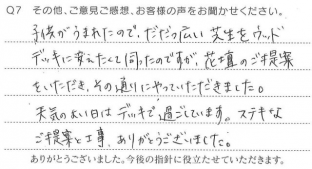 Q7 その他、ご意見ご感想、お客様の声をお聞かせください。
子供がうまれたので、だだっ広い芝生をウッド
デッキに変えたくて伺ったのですが、花壇のご提案
をいただき、その通りにやっていただきました。
天気のよい日はデッキで過ごしています。ステキな
ご提案と工事、ありがとうございました。
ありがとうございました。今後の指針に役立たせていただきます。